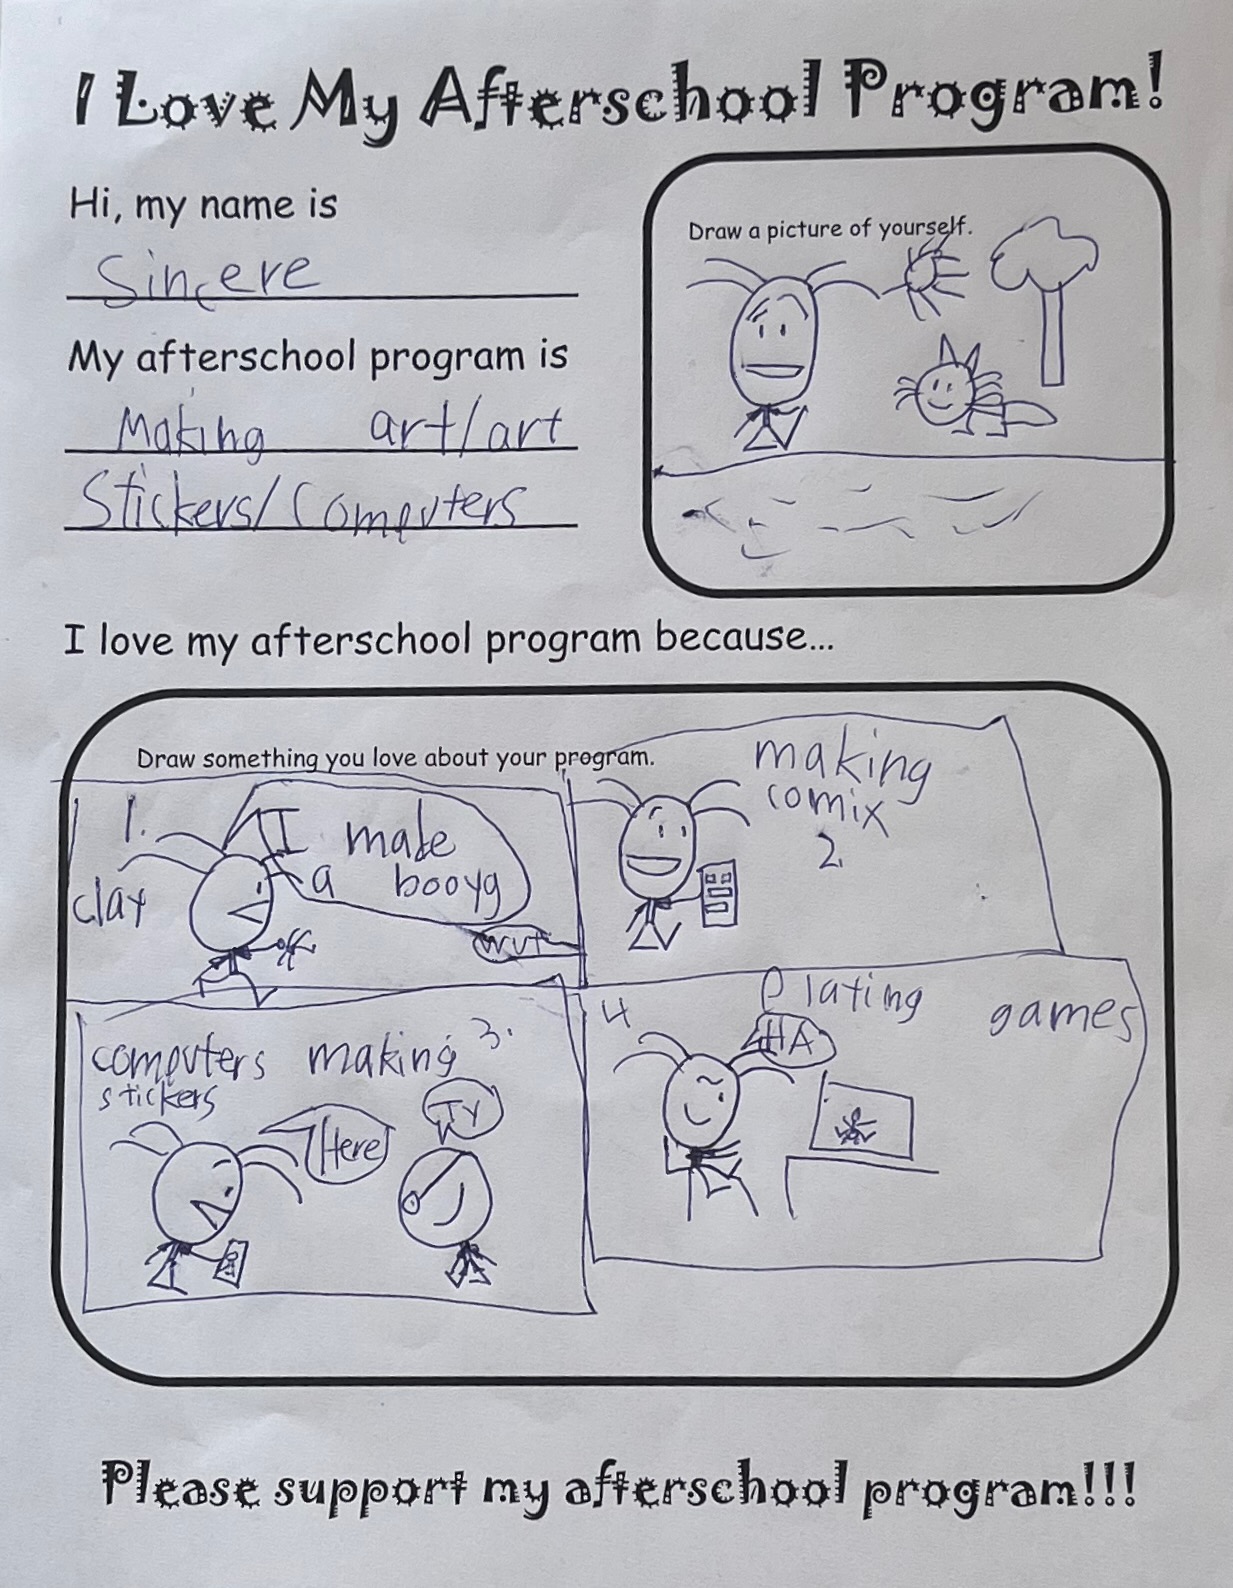 I Love My Afterschool Program!
Hi, my name is
Sincere
My afterschool program is
Making art/art
Stickers/Computers
Draw a picture of yourself.
I love my afterschool program because...
Draw something you love about your program.
1.
clay
I made
a booyg
wut
making
comix
2.
computers making 3.
stickers
Here
TY
4
Plating games
HA
Please support my afterschool program!!!